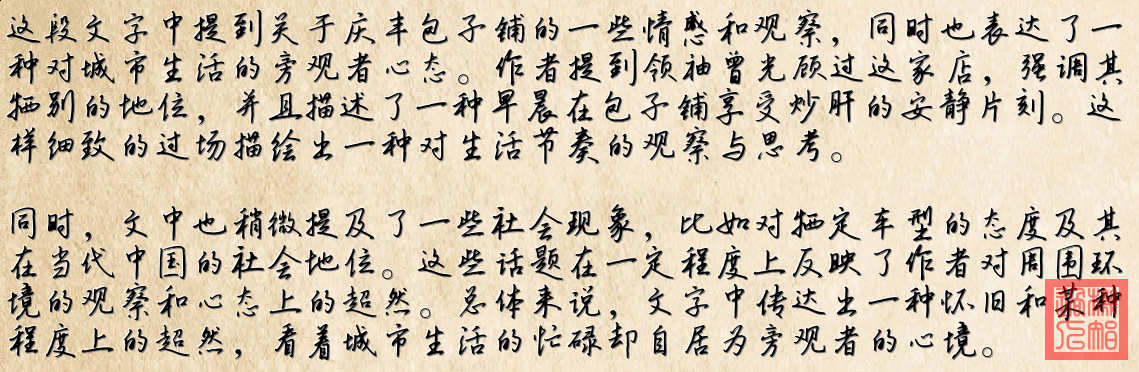 这段文字中提到关于庆丰包子铺的一些情感和观察，同时也表达了一
种对城市生活的旁观者心态。作者提到领袖曾光顾过这家店，强调其
牺别的地位，并且描述了一种早晨在包子铺享受炒肝的安静片刻。这
样细致的过场描绘出一种对生活节奏的观察与思考。
同时，文中也稍微提及了一些社会现象，比如对牺定车型的态度及其
在当代中国的社会地位。这些话题在一定程度上反映了作者对周围环
境的观察和心态上的超然。总体来说，文字中传达出一种怀旧和某种
程度上的超然，看着城市生活的忙碌却自居为旁观者的心境。